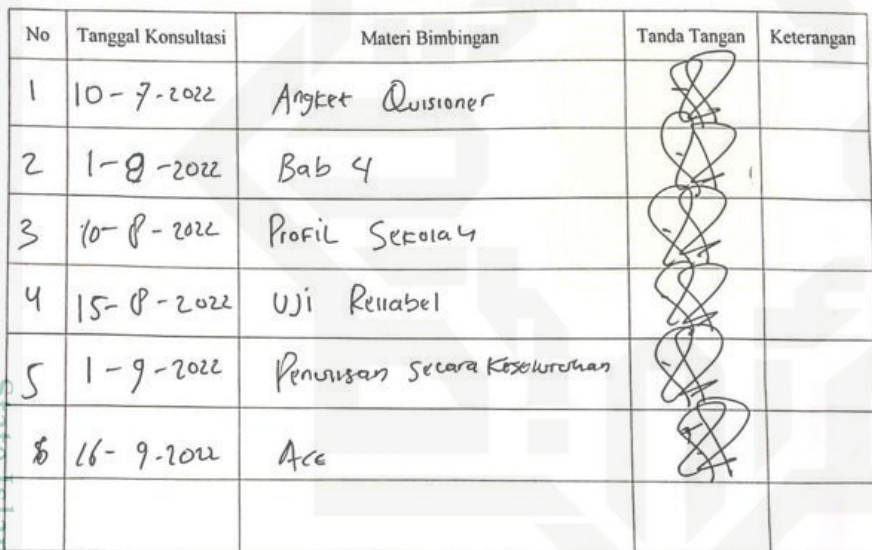 No Tanggal Konsultasi Materi Bimbingan Tanda Tangan Keterangan
1 10-7-2022 Angket Quisioner
2 1-8-2022 Bab 4
3 10-8-2022 Profil Sekolah
4 15-8-2022 Uji Reliabel
5 1-9-2022 Penulisan secara Keseluruhan
6 16-9-2022 Acc